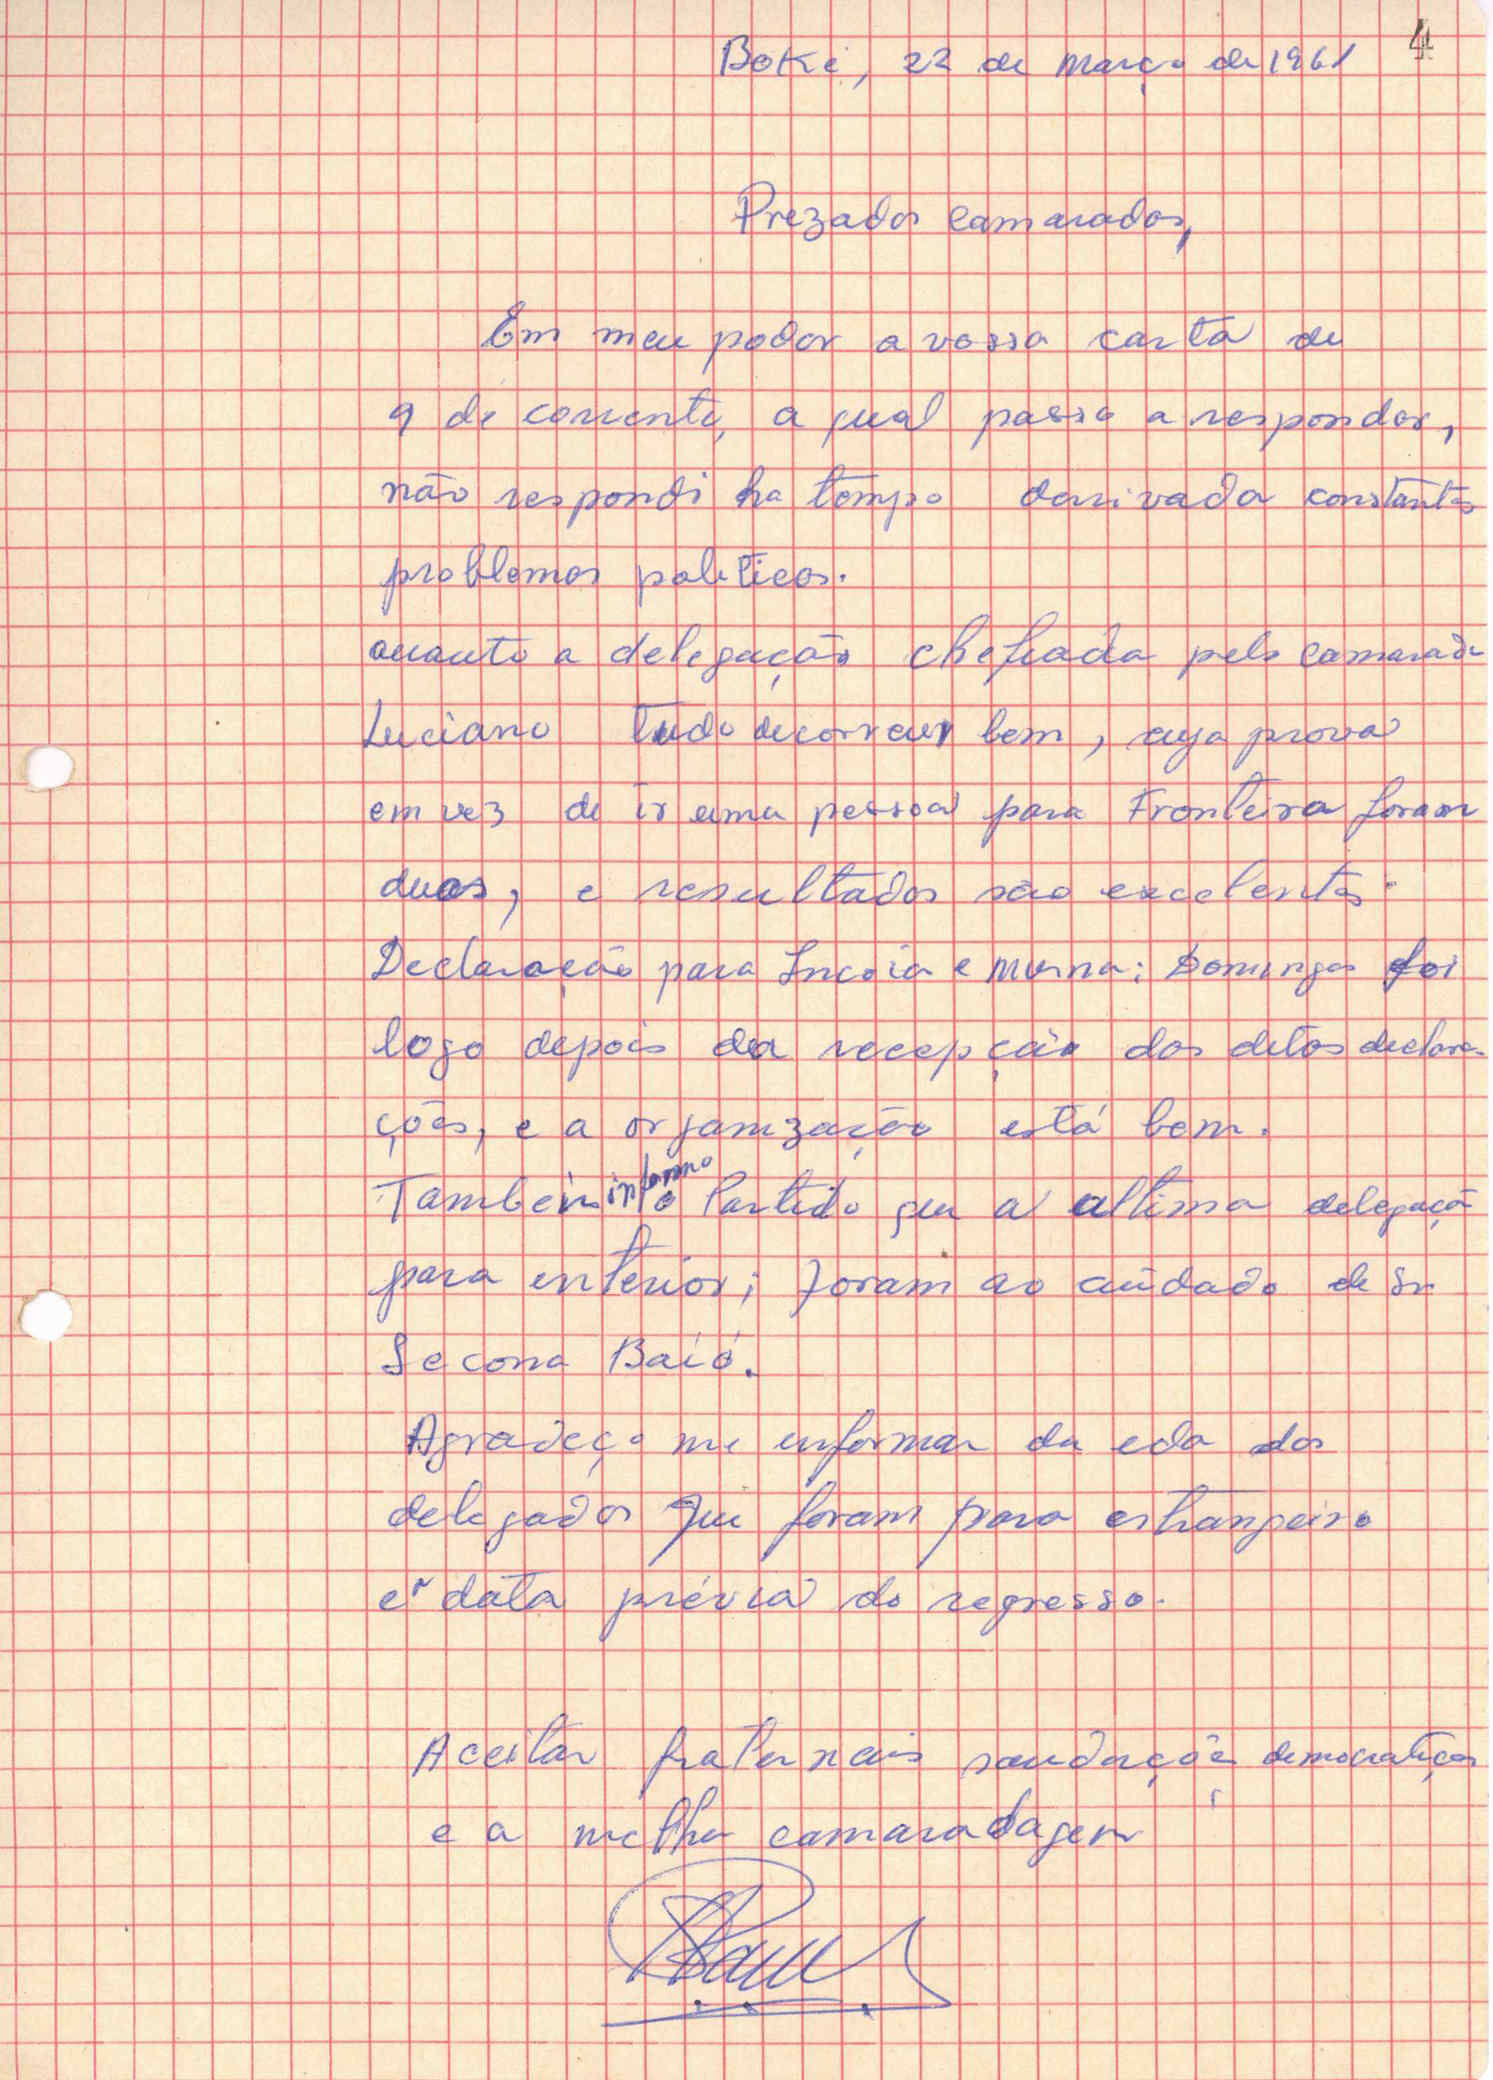 4
Boké, 22 de março de 1961
Prezados camaradas,
Em meu poder a vossa carta de
9 de corrente, a qual passo a responder,
não respondi ha tempo derivada constantes
problemas politicos.
quanto a delegação chefiada pelo camarada
Luciano tudo decorreu bem, cuja prova
em vez de ir uma pessoa para Fronteira foram
duas, e resultados são excelentes.
Declaração para e Morna: Domingos foi
logo depois da recepção das ditas declara-
ções, e a organização está bem.
Também informo o Partido que a ultima delegação
para enterior; foram ao cuidado de Sr
Secona Baió.
Agradeço me enformar da eda dos
delegados que foram para estrangeiro
e a data prévia do regresso.
Aceitar fraternais saudações democraticas
e a melhor camaradagem